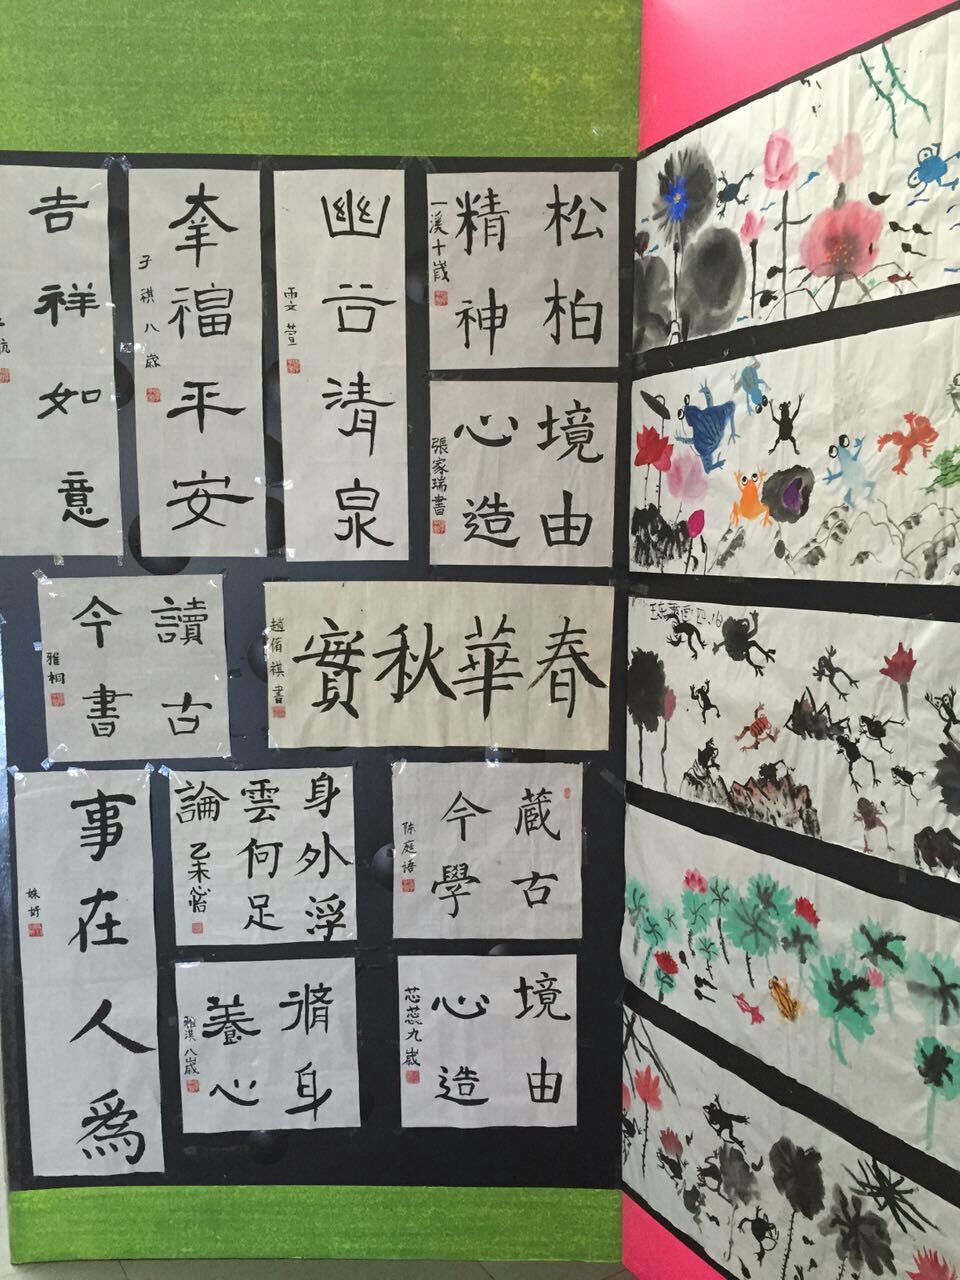 吉祥如意
航
幸福平安
子祺八歲
幽谷清泉
雯萱
松柏
精神
一溪十歲
境由
心造
張家瑞書
讀古
今書
雅桐
春華秋實
趙脩祺書
事在人爲
姝妤
身外浮
雲何足
論
乙未心怡
藏古
今學
陈庭语
脩身
養心
雅淇八歲
境由
心造
芯蕊九歲